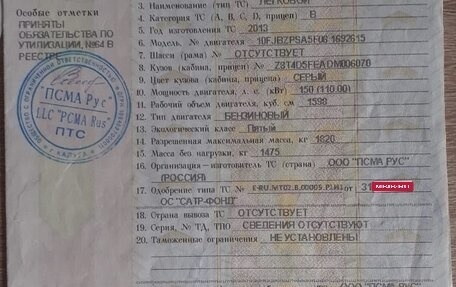 Особые отметки
ПРИНЯТЫ
ОБЯЗАТЕЛЬСТВА ПО
УТИЛИЗАЦИИ, №64 В
РЕЕСТРЕ
"ПСМА Рус"
LLC "PCMA Rus"
ПТС
г. КАЛУГА
3. Наименование (тип ТС) ЛЕГКОВОЙ
4. Категория ТС (А, В, С, D, прицеп) В
5. Год изготовления ТС 2013
6. Модель, № двигателя 10FJBZPSA5F06 1692615
7. Шасси (рама) № ОТСУТСТВУЕТ
8. Кузов (кабина, прицеп) № Z8T4D5FEADM006078
9. Цвет кузова (кабины, прицепа) СЕРЫЙ
10. Мощность двигателя, л. с. (кВт) 150 (110.00)
11. Рабочий объем двигателя, куб. см 1598
12. Тип двигателя БЕНЗИНОВЫЙ
13. Экологический класс Пятый
14. Разрешенная максимальная масса, кг 1820
15. Масса без нагрузки, кг 1475
16. Организация—изготовитель ТС (страна) ООО "ПСМА РУС"
(РОССИЯ)
17. Одобрение типа ТС № от
ОС "САТР-ФОНД"
18. Страна вывоза ТС ОТСУТСТВУЕТ
19. Серия, № ТД, ТПО СВЕДЕНИЯ ОТСУТСТВУЮТ
20. Таможенные ограничения НЕ УСТАНОВЛЕНЫ
ООО "ПСМА РУС"